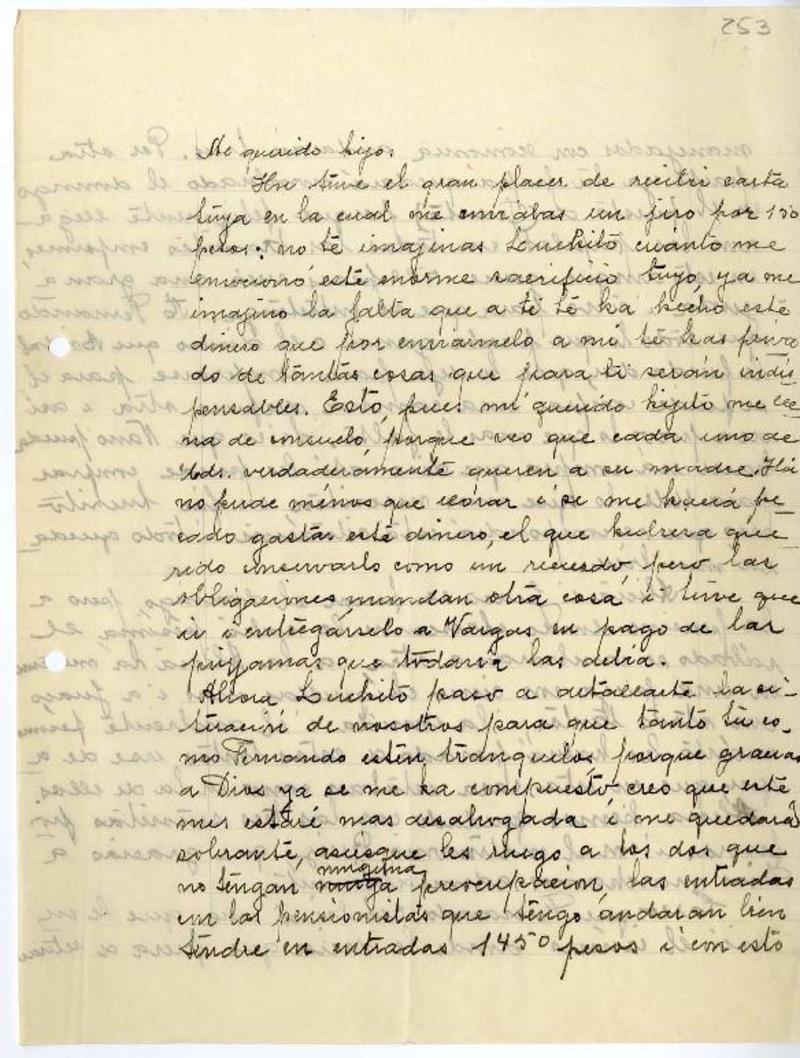 253
Mi querido hijo:
Hoi tuve el gran placer de recibir carta
tuya en la cual me enviabas un jiro por 150
pesos; no te imajinas Luchito cuánto me
emocionó este enorme sacrificio tuyo, ya me
imajino la falta que a ti te ha hecho este
dinero que por enviármelo a mi te has priva
do de tantas cosas que para ti serán indis
pensables. Esto, pues mi querido hijito me lle
na de consuelo, porque veo que cada uno de
Uds. verdaderamente quieren a su madre.
no pude ménos que llorar i se me hacía pe
cado gastar este dinero, el que hubiera que
rido conservarlo como un recuerdo, pero las
obligaciones mandan otra cosa i tuve que
ir i entregárselo a Vargas en pago de las
piyjamas que todavía las debía.
Ahora Luchito paso a detallarte la si-
tuación de nosotros para que tanto tú co-
mo Fernando estén tranquilos, porque gracias
a Dios ya se me ha compuesto, creo que este
mes estaré mas desahogada i me quedará
sobrante, asiesque les ruego a los dos que
no tengan ninguna preocupación, las entradas
con los pensionistas que tengo andarán bien
tendré en entradas 1450 pesos i con esto